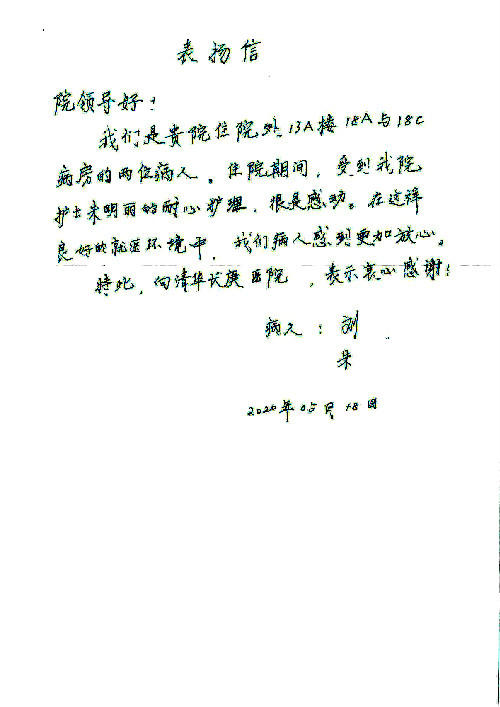 表扬信
院领导好！
我们是贵院住院处13A楼18A与18C
病房的两位病人。住院期间，受到我院
护士朱明丽的耐心护理，很是感动。在这样
良好的就医环境中，我们病人感到更加放心。
特此，向清华长庚医院，表示衷心感谢！
病人：刘
朱
2020年05月18日